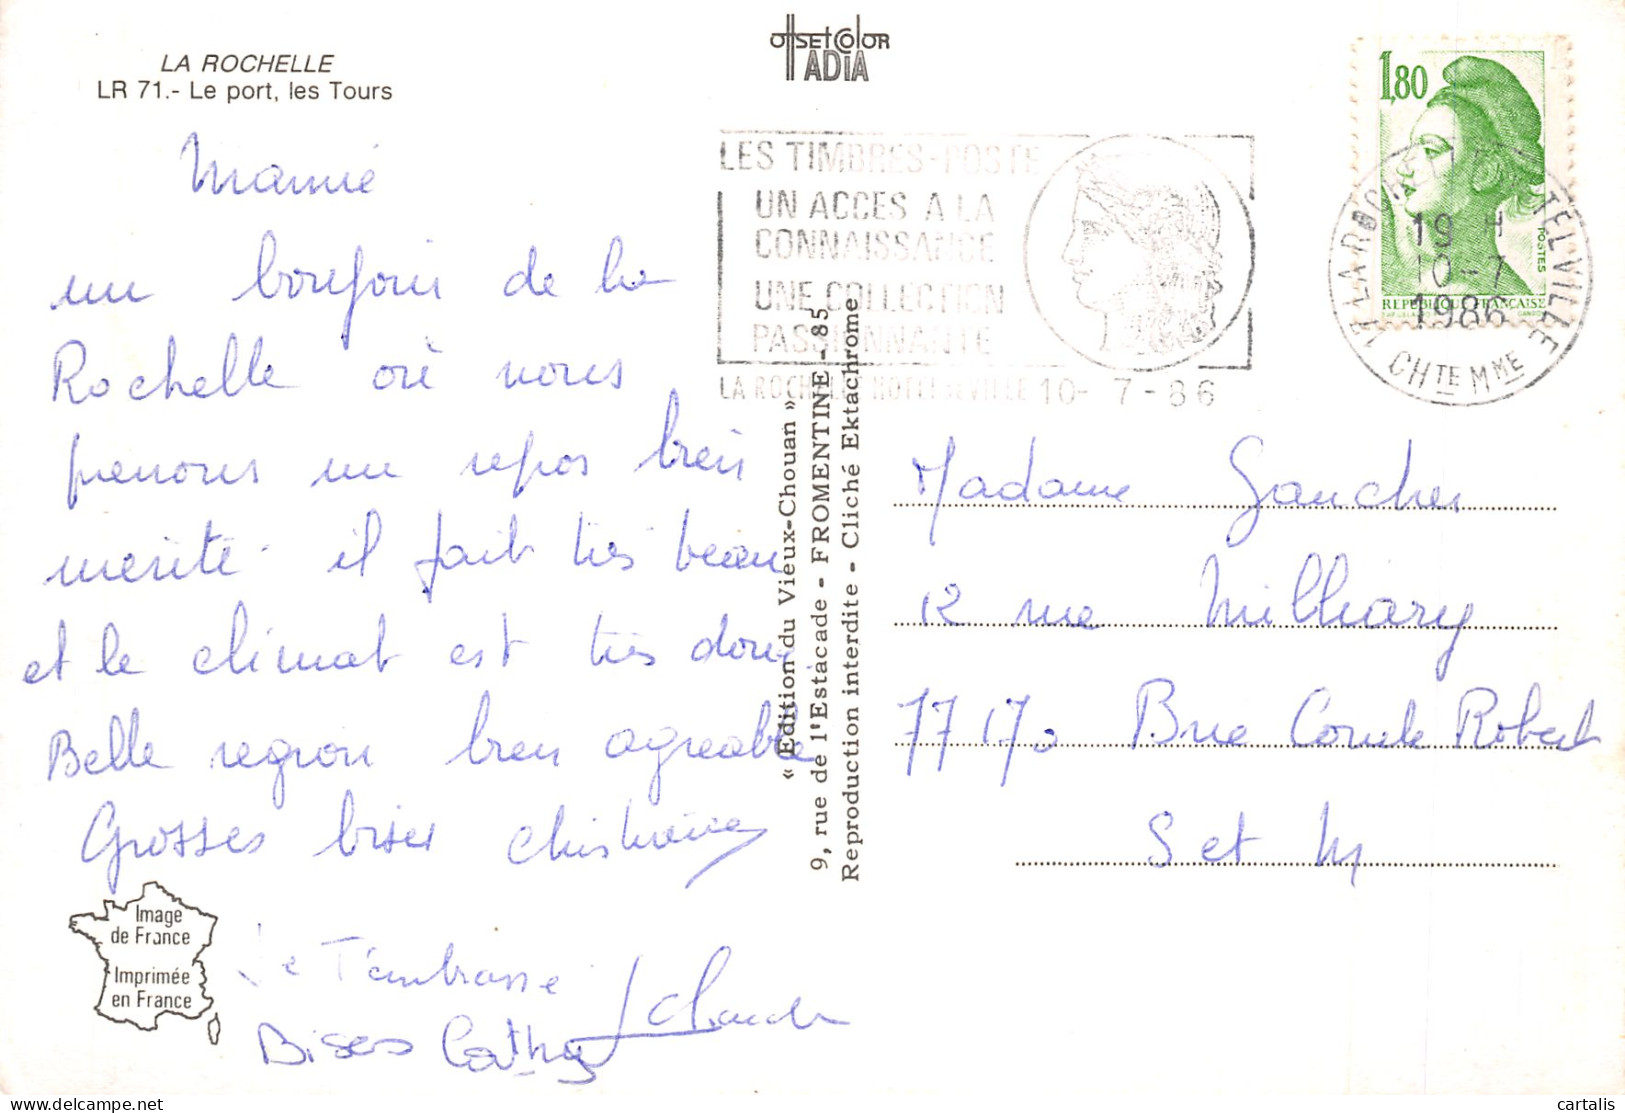 LA ROCHELLE
LR 71.- Le port, les Tours
OffsetColor
ADIA
Mamie
un bonjour de la
Rochelle où nous
prenons un repos bien
mérité. il fait très beau
et le climat est très doux
Belle region bien agreable
Grosses bises Christiane
Je T'embrasse
J Claude
Bises Cathy
Image
de France
Imprimée
en France
« Edition du Vieux-Chouan »
9, rue de l'Estacade - FROMENTINE - 85
Reproduction interdite - Cliché Ektachrome
LES TIMBRES-POSTE
UN ACCES A LA
CONNAISSANCE
UNE COLLECTION
PASSIONNANTE
LA ROCHELLE HOTEL DE VILLE 10- 7 - 86
1,80
POSTES
REPUBLIQUE FRANCAISE
17 LA ROCHELLE HOTEL VILLE
19 H
10-7
1986
CHTE MME
Madame Gaucher
12 rue Milliary
77170 Brie Comte Robert
S et M
cartalis